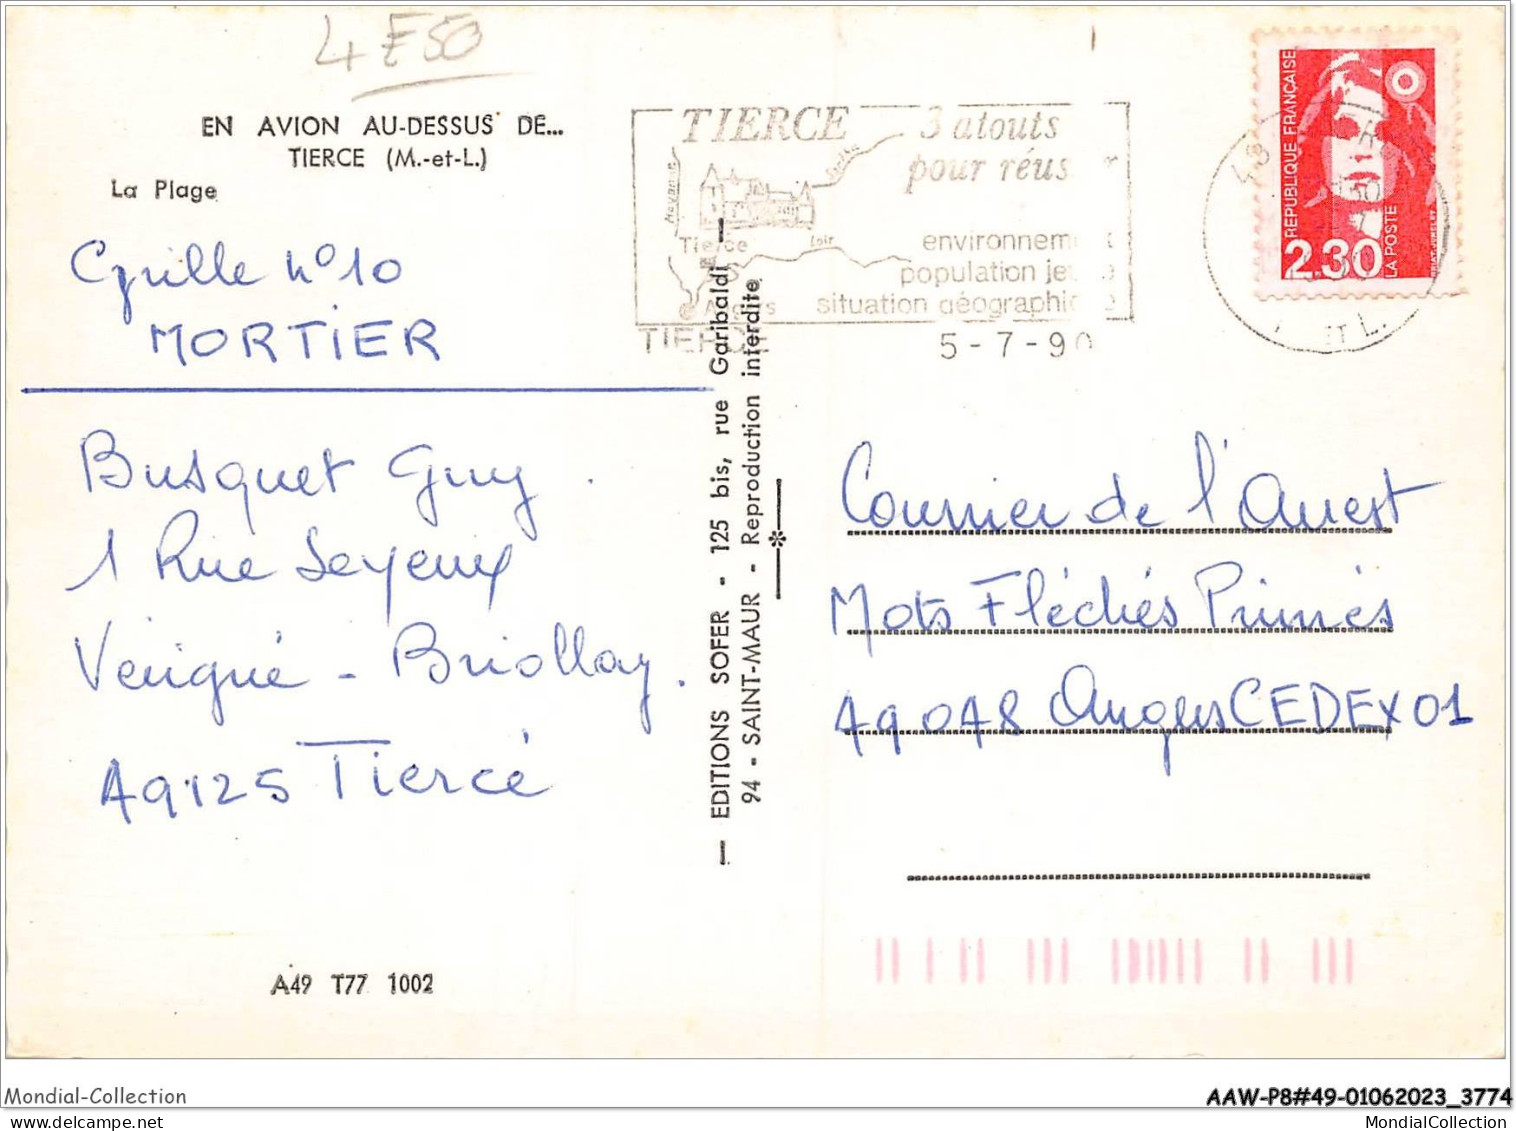 4F50
EN AVION AU-DESSUS DE...
TIERCE (M.-et-L.)
La Plage
Grille n°10
MORTIER
Busquet Guy.
1 Rue Seyeux
Vérigné - Briollay.
49125 Tiercé
A49 T77 1002
— EDITIONS SOFER - 125 bis, rue Garibaldi —
94 - SAINT-MAUR - Reproduction interdite
TIERCE 3 atouts
pour réus r
Mayenne
Sarthe
Tierce
Loir
Angers
environnem
population je e
situation géographi e
TIERCE
5-7-90
ET L.
REPUBLIQUE FRANÇAISE
2.30
LA POSTE
Courrier de l'Ouest
Mots Fléchés Primés
49048 Angers CEDEX 01
Mondial-Collection
AAW-P8#49-01062023_3774
www.delcampe.net
MondialCollection